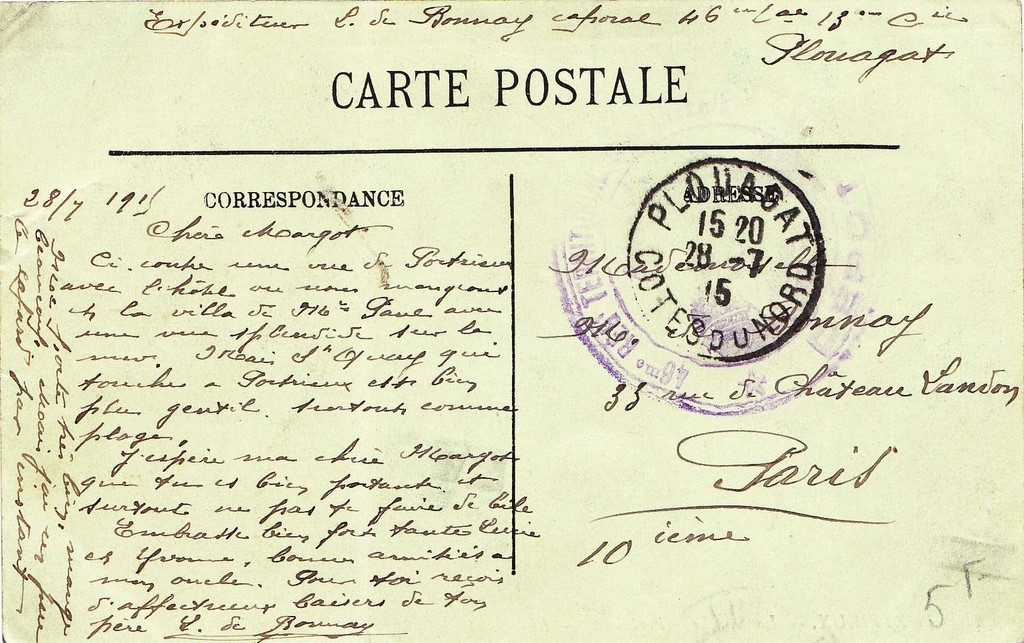 Expéditeur L. de Bonnay caporal 46me 13me Cie
Plouagat
CARTE POSTALE
CORRESPONDANCE
ADRESSE
28/7 1915
Chère Margot
Ci contre une vue de Portrieux
avec l'hôtel ou nous mangeons
et la villa de Me Paul avec
une vue splendide sur la
mer. Mais St Quay qui
touche a Portrieux est bien
plus gentil. surtout comme
plage.
J'espère ma chère Margot
que tu es bien portante et
surtout ne pas te faire de bile
Embrasse bien fort tante Lucie
et Yvonne, bonnes amitiés a
mon oncle. Pour toi reçois
d'affectueux baisers de ton
père L. de Bonnay
Moi porte très bien, mange
beaucoup, mais j'ai un peu
le cafard par instant
PLOUAGAT
15 20
28 -7
15
COTES DU NORD
46ème
Mademoiselle
Bonnay
33 rue de Château Landon
Paris
10 ième
5